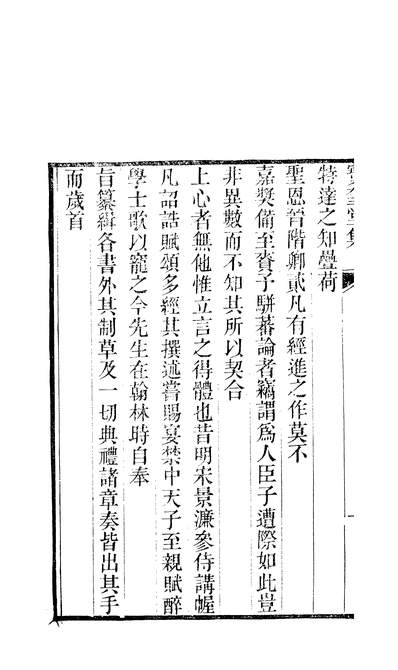 特達之知疊荷
聖恩晉階卿貳凡有經進之作莫不
嘉奬備至賚予駢蕃論者竊謂爲人臣子遭際如此豈
非異數而不知其所以契合
上心者無他惟立言之得體也昔明宋景濂參侍講幄
凡詔誥賦頌多經其撰述嘗賜宴禁中天子至親賦醉
學士歌以寵之今先生在翰林時自奉
旨纂緝各書外其制草及一切典禮諸章奏皆出其手
而歲首